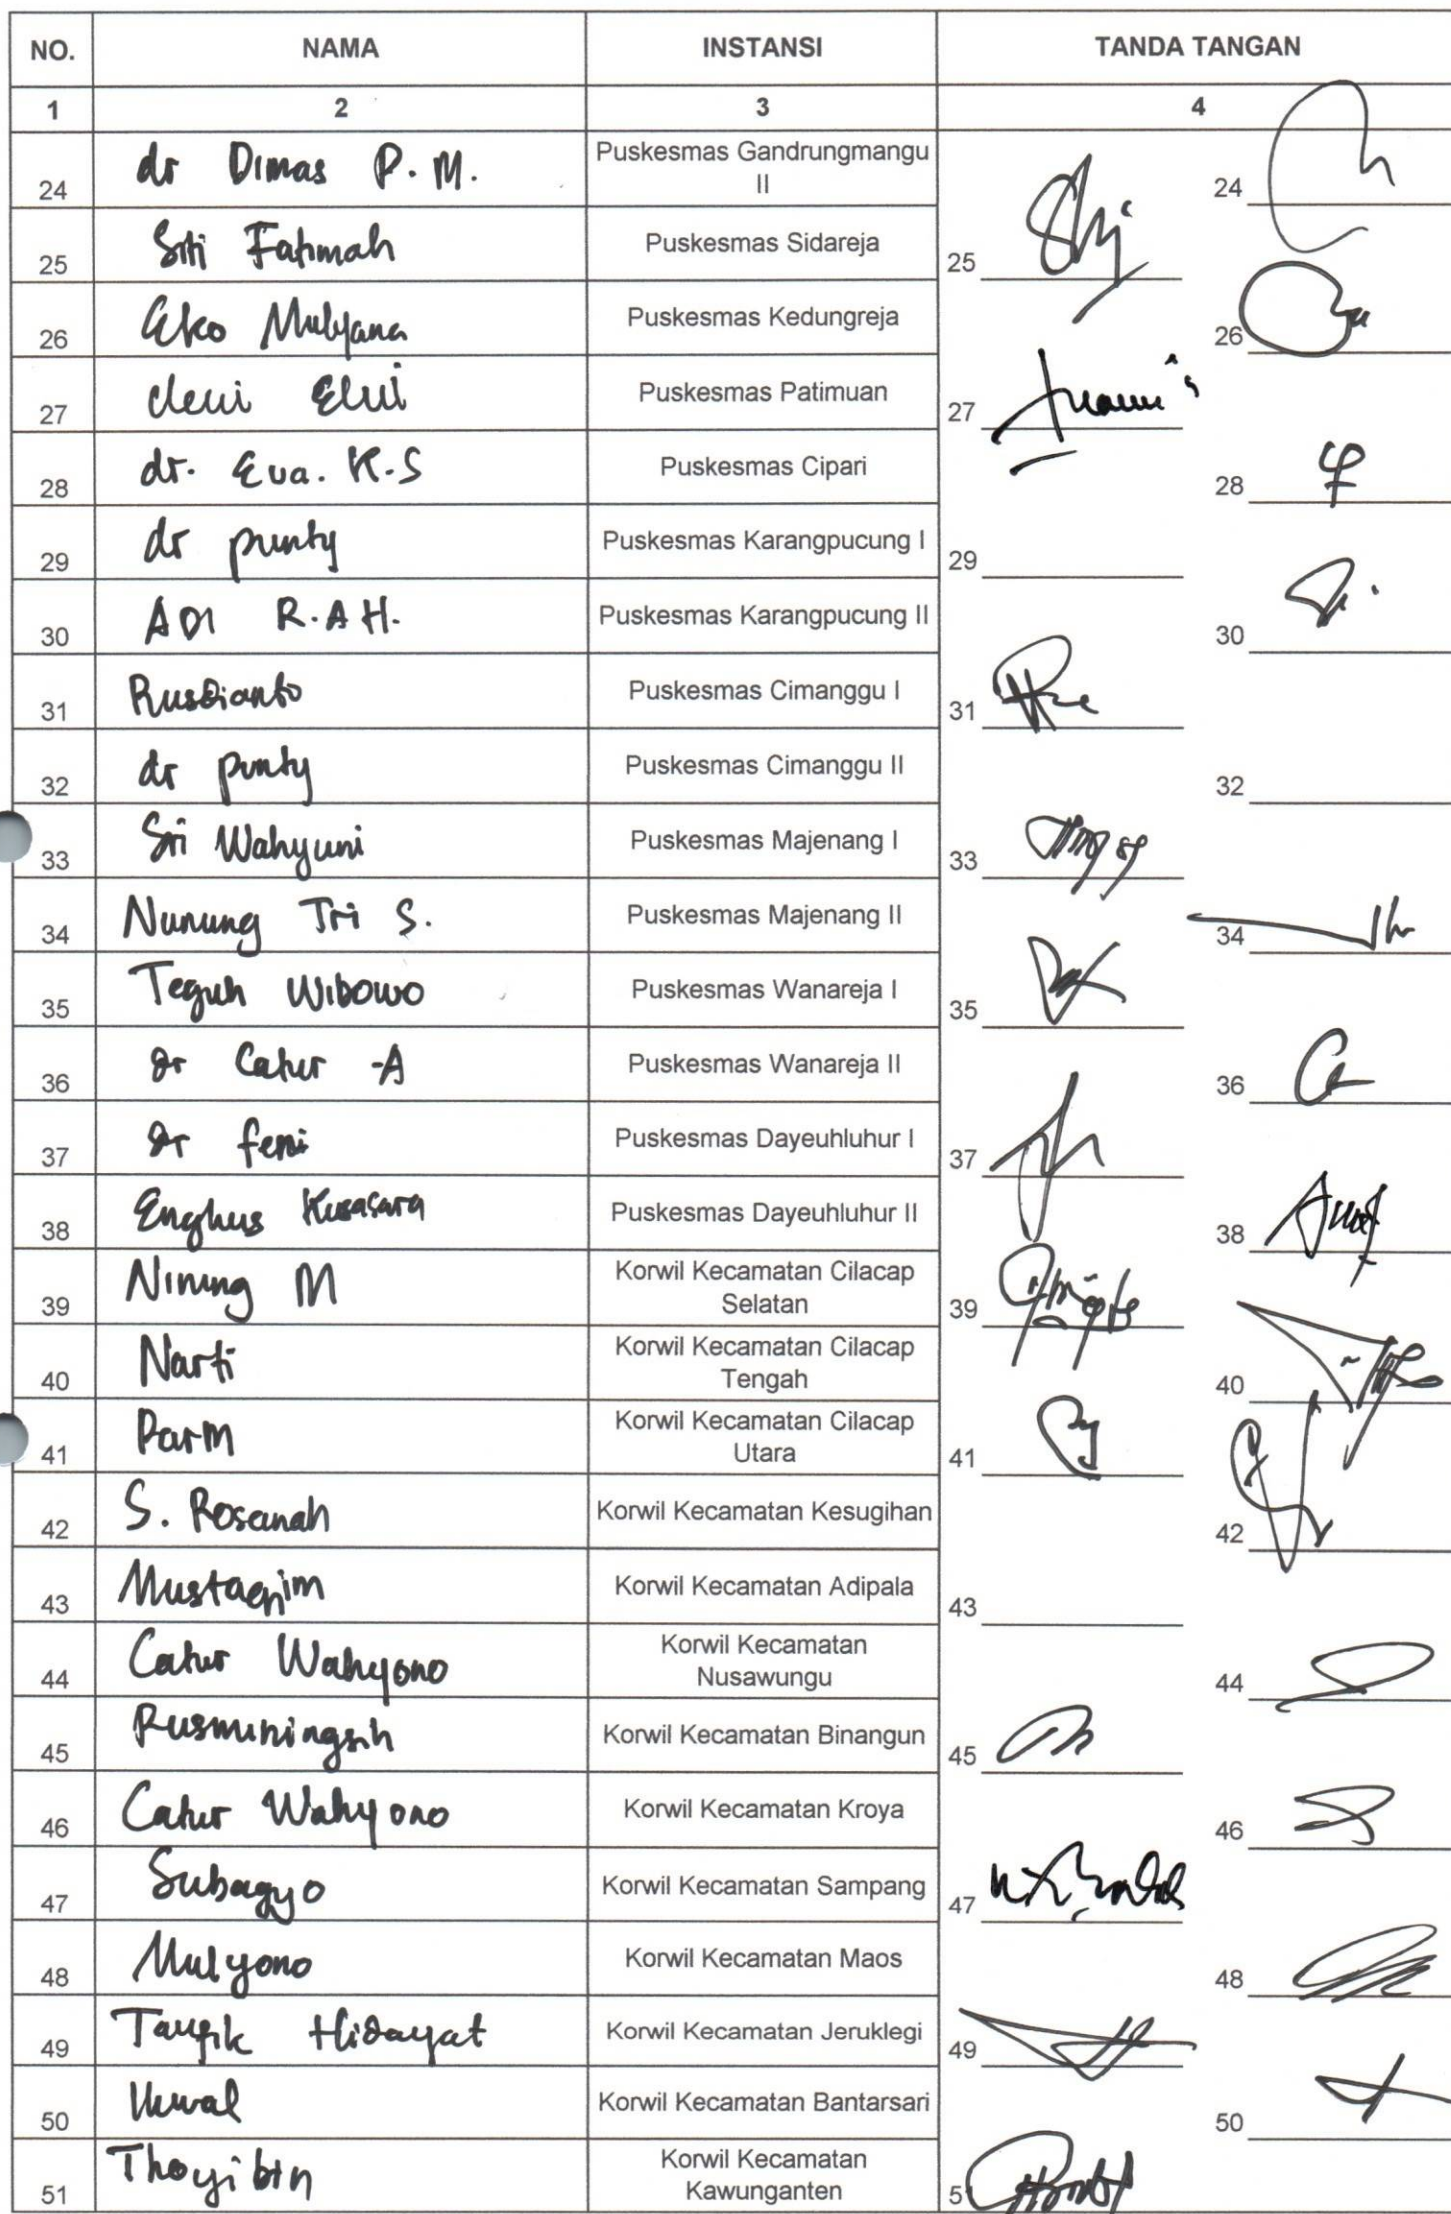 NO. NAMA INSTANSI TANDA TANGAN
1 2 3 4
24 dr Dimas P. M. Puskesmas Gandrungmangu II 24
25 Siti Fatimah Puskesmas Sidareja 25
26 Eko Mulyana Puskesmas Kedungreja 26
27 dewi Elwi Puskesmas Patimuan 27
28 dr. Eva. K.S Puskesmas Cipari 28
29 dr punty Puskesmas Karangpucung I 29
30 ADI R.AH. Puskesmas Karangpucung II 30
31 Rusdianto Puskesmas Cimanggu I 31
32 dr punty Puskesmas Cimanggu II 32
33 Sri Wahyuni Puskesmas Majenang I 33
34 Nunung Tri S. Puskesmas Majenang II 34
35 Teguh Wibowo Puskesmas Wanareja I 35
36 dr Catur -A Puskesmas Wanareja II 36
37 dr feni Puskesmas Dayeuhluhur I 37
38 Enghus Puskesmas Dayeuhluhur II 38
39 Nining M Korwil Kecamatan Cilacap Selatan 39
40 Narti Korwil Kecamatan Cilacap Tengah 40
41 Korwil Kecamatan Cilacap Utara 41
42 S. Rosanah Korwil Kecamatan Kesugihan 42
43 Mustaqim Korwil Kecamatan Adipala 43
44 Catur Wahyono Korwil Kecamatan Nusawungu 44
45 Rusminingsih Korwil Kecamatan Binangun 45
46 Catur Wahyono Korwil Kecamatan Kroya 46
47 Subagyo Korwil Kecamatan Sampang 47
48 Mulyono Korwil Kecamatan Maos 48
49 Taufik Hidayat Korwil Kecamatan Jeruklegi 49
50 Korwil Kecamatan Bantarsari 50
51 Thoyibin Korwil Kecamatan Kawunganten 51